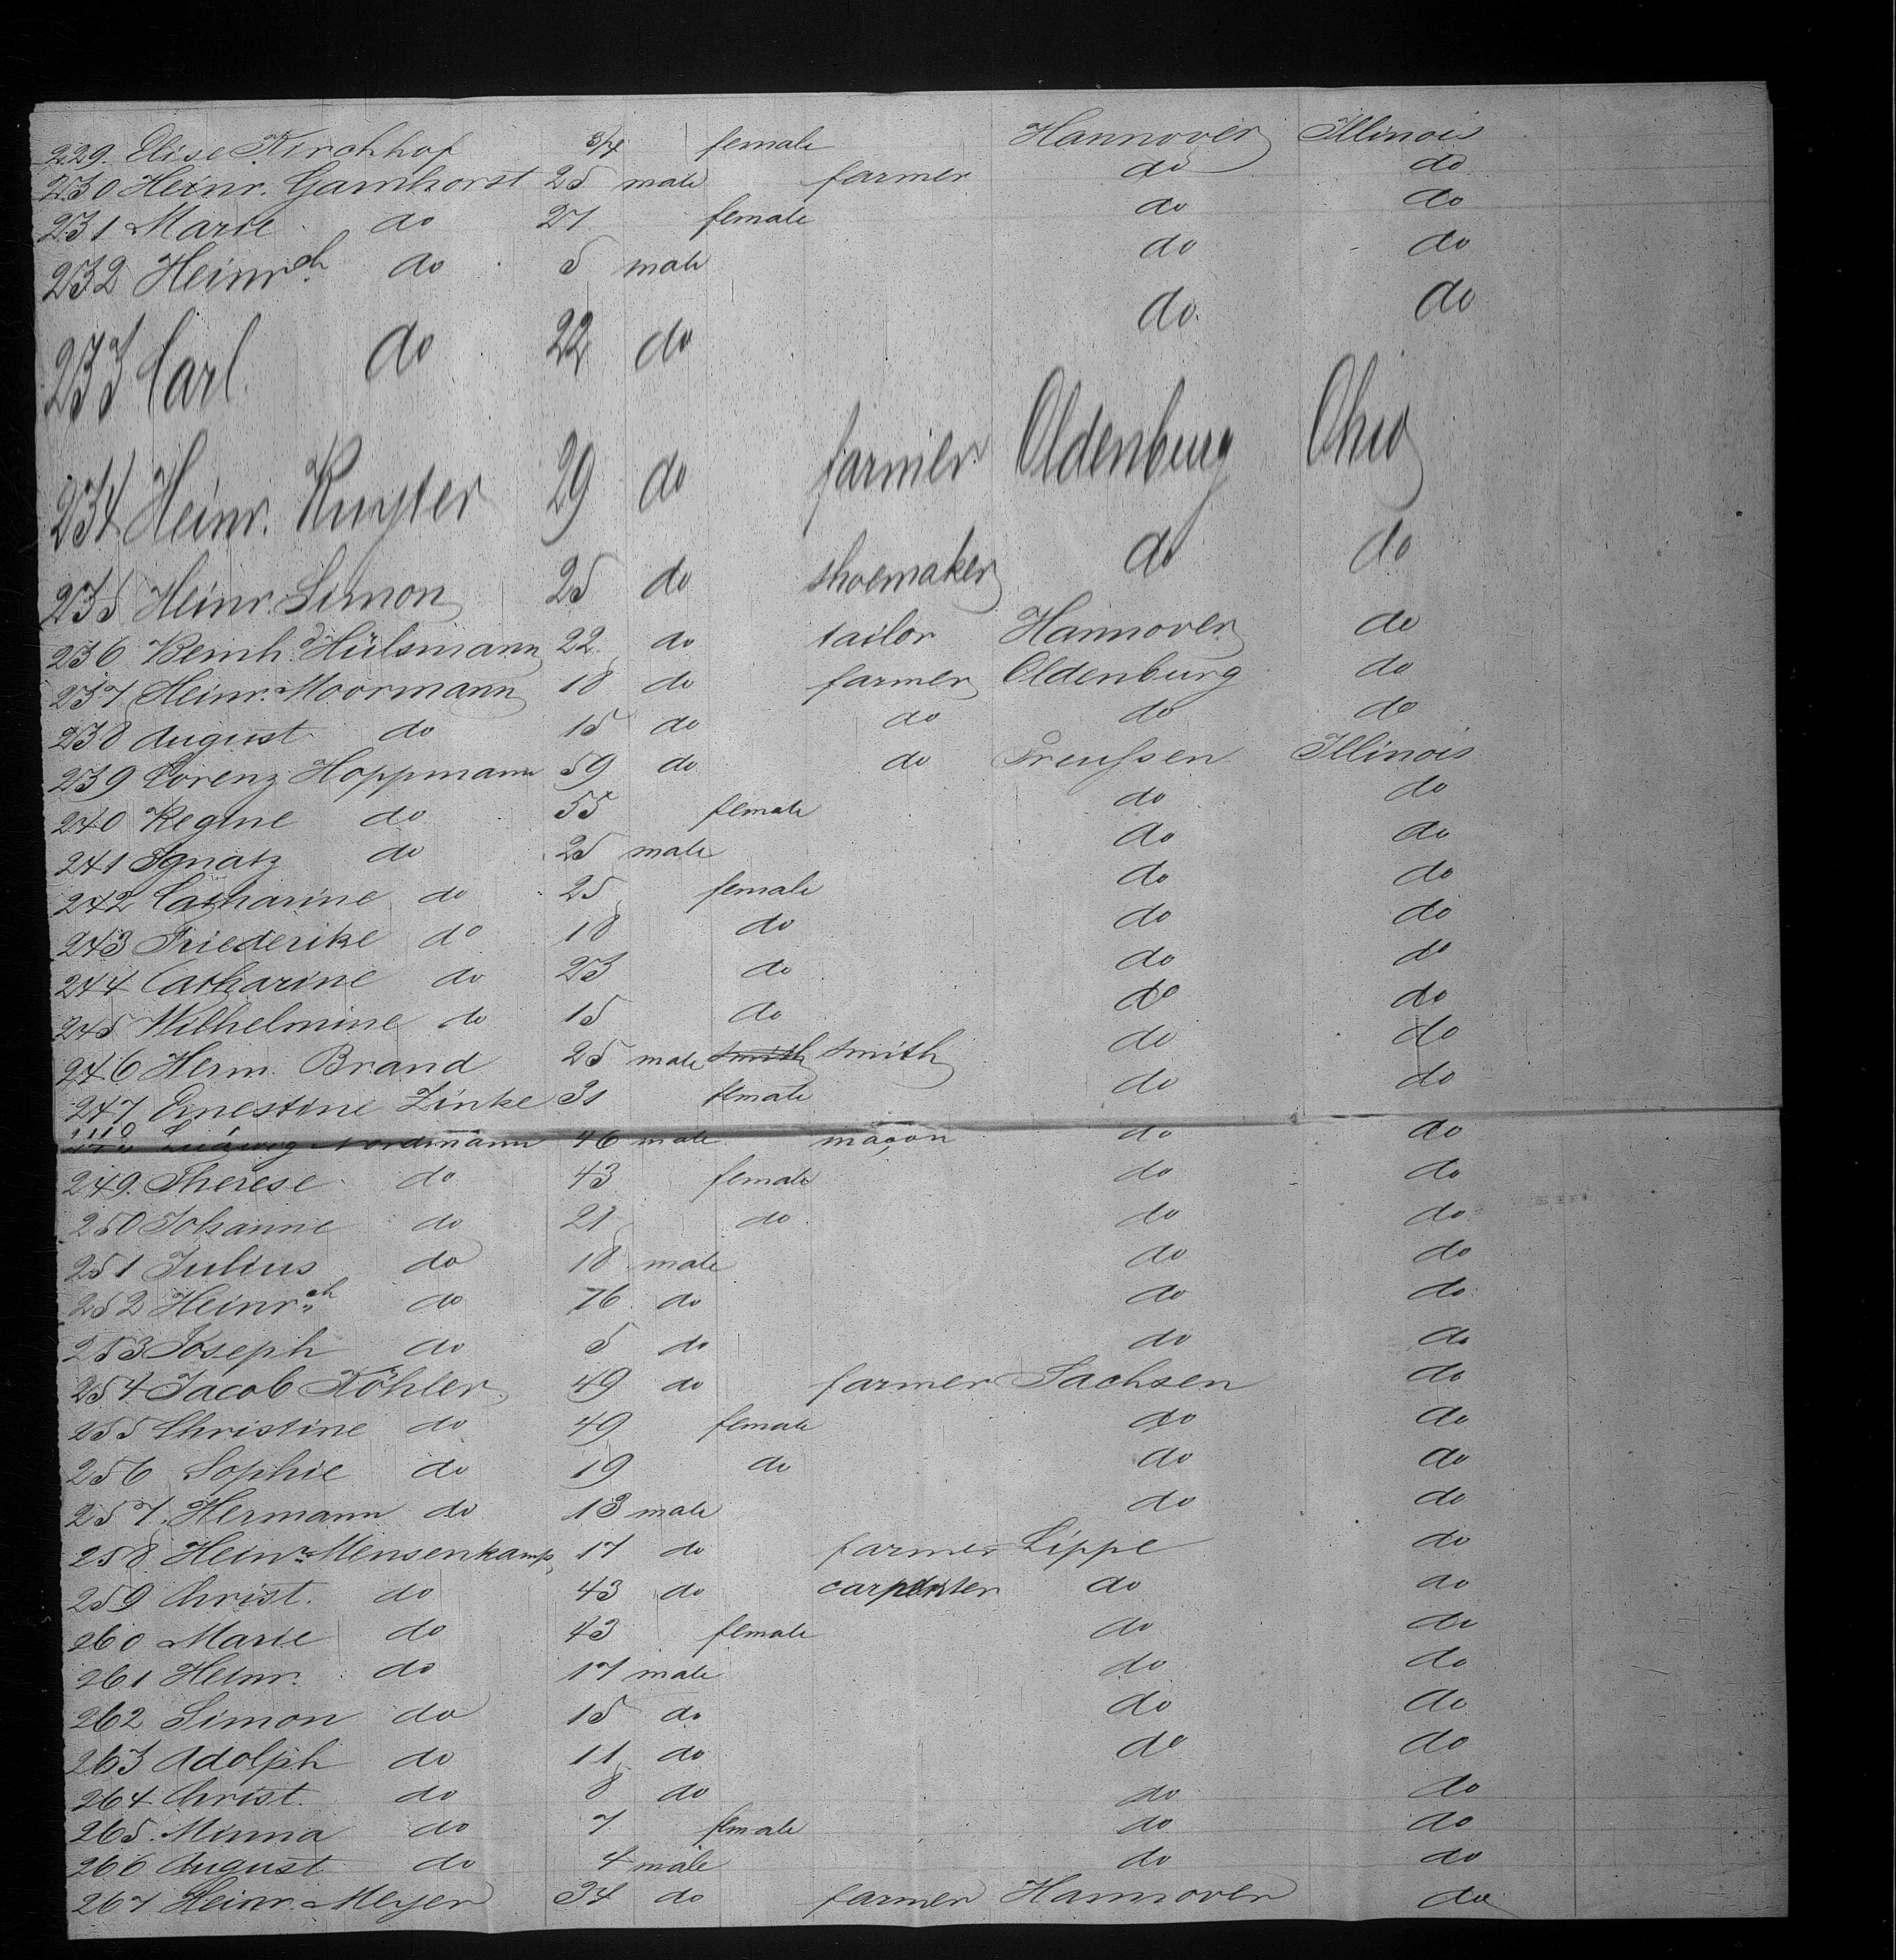 229. Elise Kirchhof 3/4 female Hannover Illinois
230 Heinr. Gamhorst 25 male farmer do do
231 Marie do 27 female do do
232 Heinrch do 5 male do do
233 Carl do 22 do do do
234 Heinr. Kuyter 29 do farmer Oldenburg Ohio
235 Heinr. Simon 25 do shoemaker do do
236 Bernhd Hülsmann 22 do tailor Hannover do
237 Heinr. Moormann 18 do farmer Oldenburg do
238 August do 15 do do do do
239 Lorenz Hoppmann 59 do do Preussen Illinois
240 Regine do 55 female do do
241 Ignatz do 25 male do do
242 Catharine do 25 female do do
243 Friederike do 18 do do do
244 Catharine do 23 do do do
245 Wilhelmine do 15 do do do
246 Herm. Brand 25 male smith smith do do
247 Ernestine Zinke 31 female do do
Ludwig Nordmann 46 male maçon do do
249. Therese do 43 female do do
250 Johanne do 21 do do do
251 Julius do 18 male do do
252 Heinrch do 16 do do do
253 Joseph do 5 do do do
254 Jacob Köhler 49 do farmer Sachsen do
255 Christine do 49 female do do
256 Sophie do 19 do do do
257. Hermann do 13 male do do
258 Heinr. Mensenkamp 17 do farmer Lippe do
259 Christ. do 43 do carpenter do do
260 Marie do 43 female do do
261 Heinr. do 17 male do do
262 Simon do 15 do do do
263 Adolph do 11 do do do
264 Christ. do 8 do do do
265. Minna do 7 female do do
266 August do 4 male do do
267 Heinr. Meyer 34 do farmer Hannover do